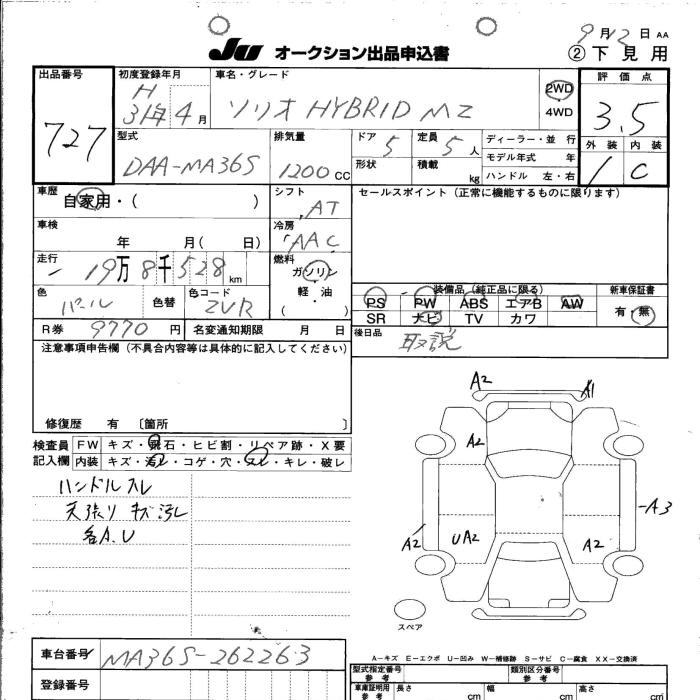 9月12日 AA
JU オークション出品申込書 ②下見用
出品番号 初度登録年月 車名・グレード 評価点
727 H31年4月 ソリオ HYBRID MZ 2WD 4WD 3.5
型式 排気量 ドア 定員 ディーラー・並行 外装 内装
DAA-MA36S 1200cc 5 5人 モデル年式 年 1 C
形状 積載 kg ハンドル 左・右
車歴 自家用・( ) シフト AT セールスポイント(正常に機能するものに限ります)
車検 年 月( 日) 冷房 AAC
走行 19万8千528km 燃料 ガソリン 軽・油 ( )
装備品(純正品に限る) 新車保証書
色 パール 色替 色コード ZVR PS PW ABS エアB AW 有・無
SR ナビ TV カワ
R券 9770円 名変通知期限 月 日 後日品 取説
注意事項申告欄(不具合内容等は具体的に記入してください)
修復歴 有 〔箇所 〕
検査員記入欄 FW キズ・飛石・ヒビ割・リペア跡・X要
内装 キズ・汚レ・コゲ・穴・スレ・キレ・破レ
ハンドルスレ
天張りキズ汚レ
各A.U
A2 A1
A2
A3
A2 UA2 A2
スペア
A-キズ E-エクボ U-凹み W-補修跡 S-サビ C-腐食 XX-交換済
車台番号 MA36S-262263
型式指定番号 参考 類別区分番号 参考
登録番号
車庫証明用 参考 長さ cm 幅 cm 高さ cm